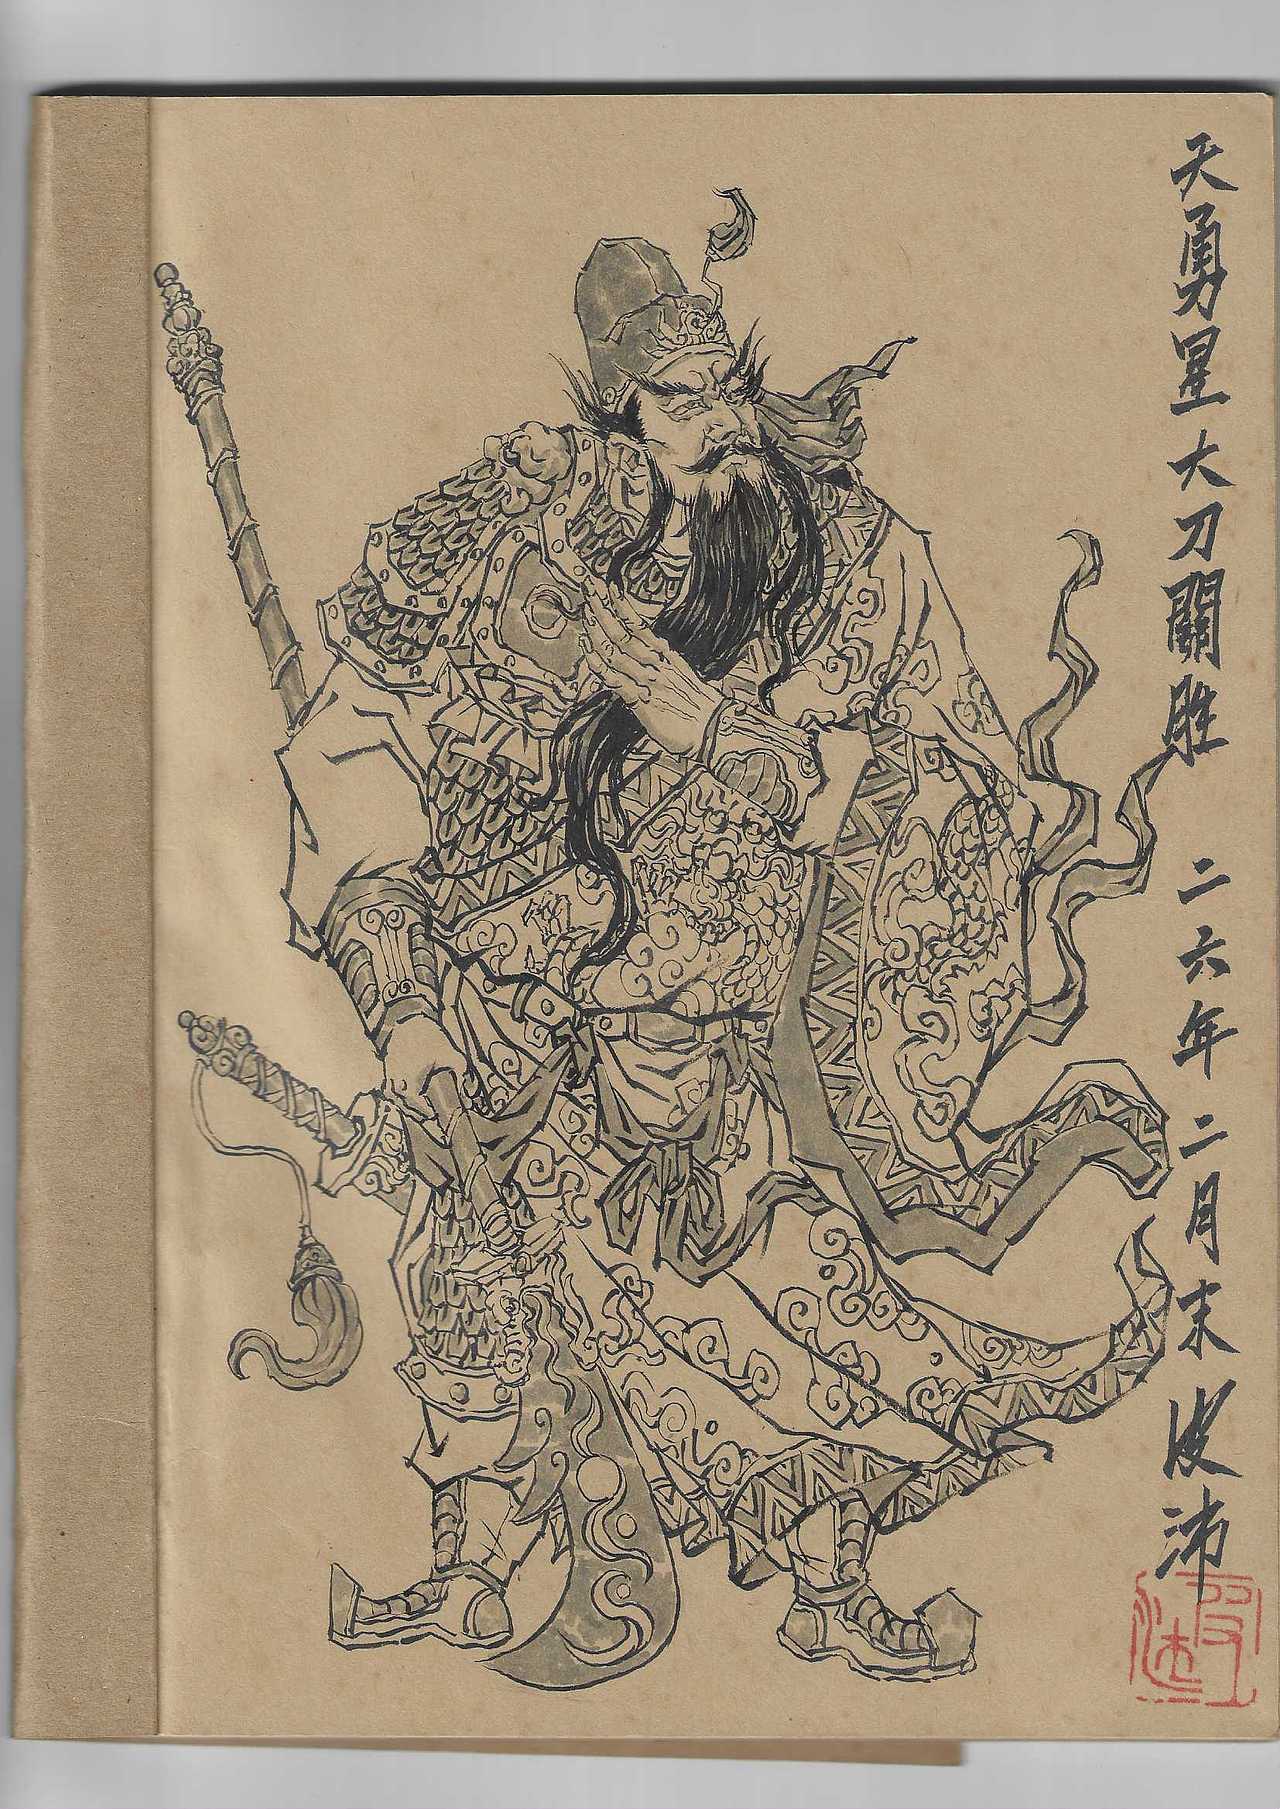 天勇星大刀關胜 二六年二月末 波沛